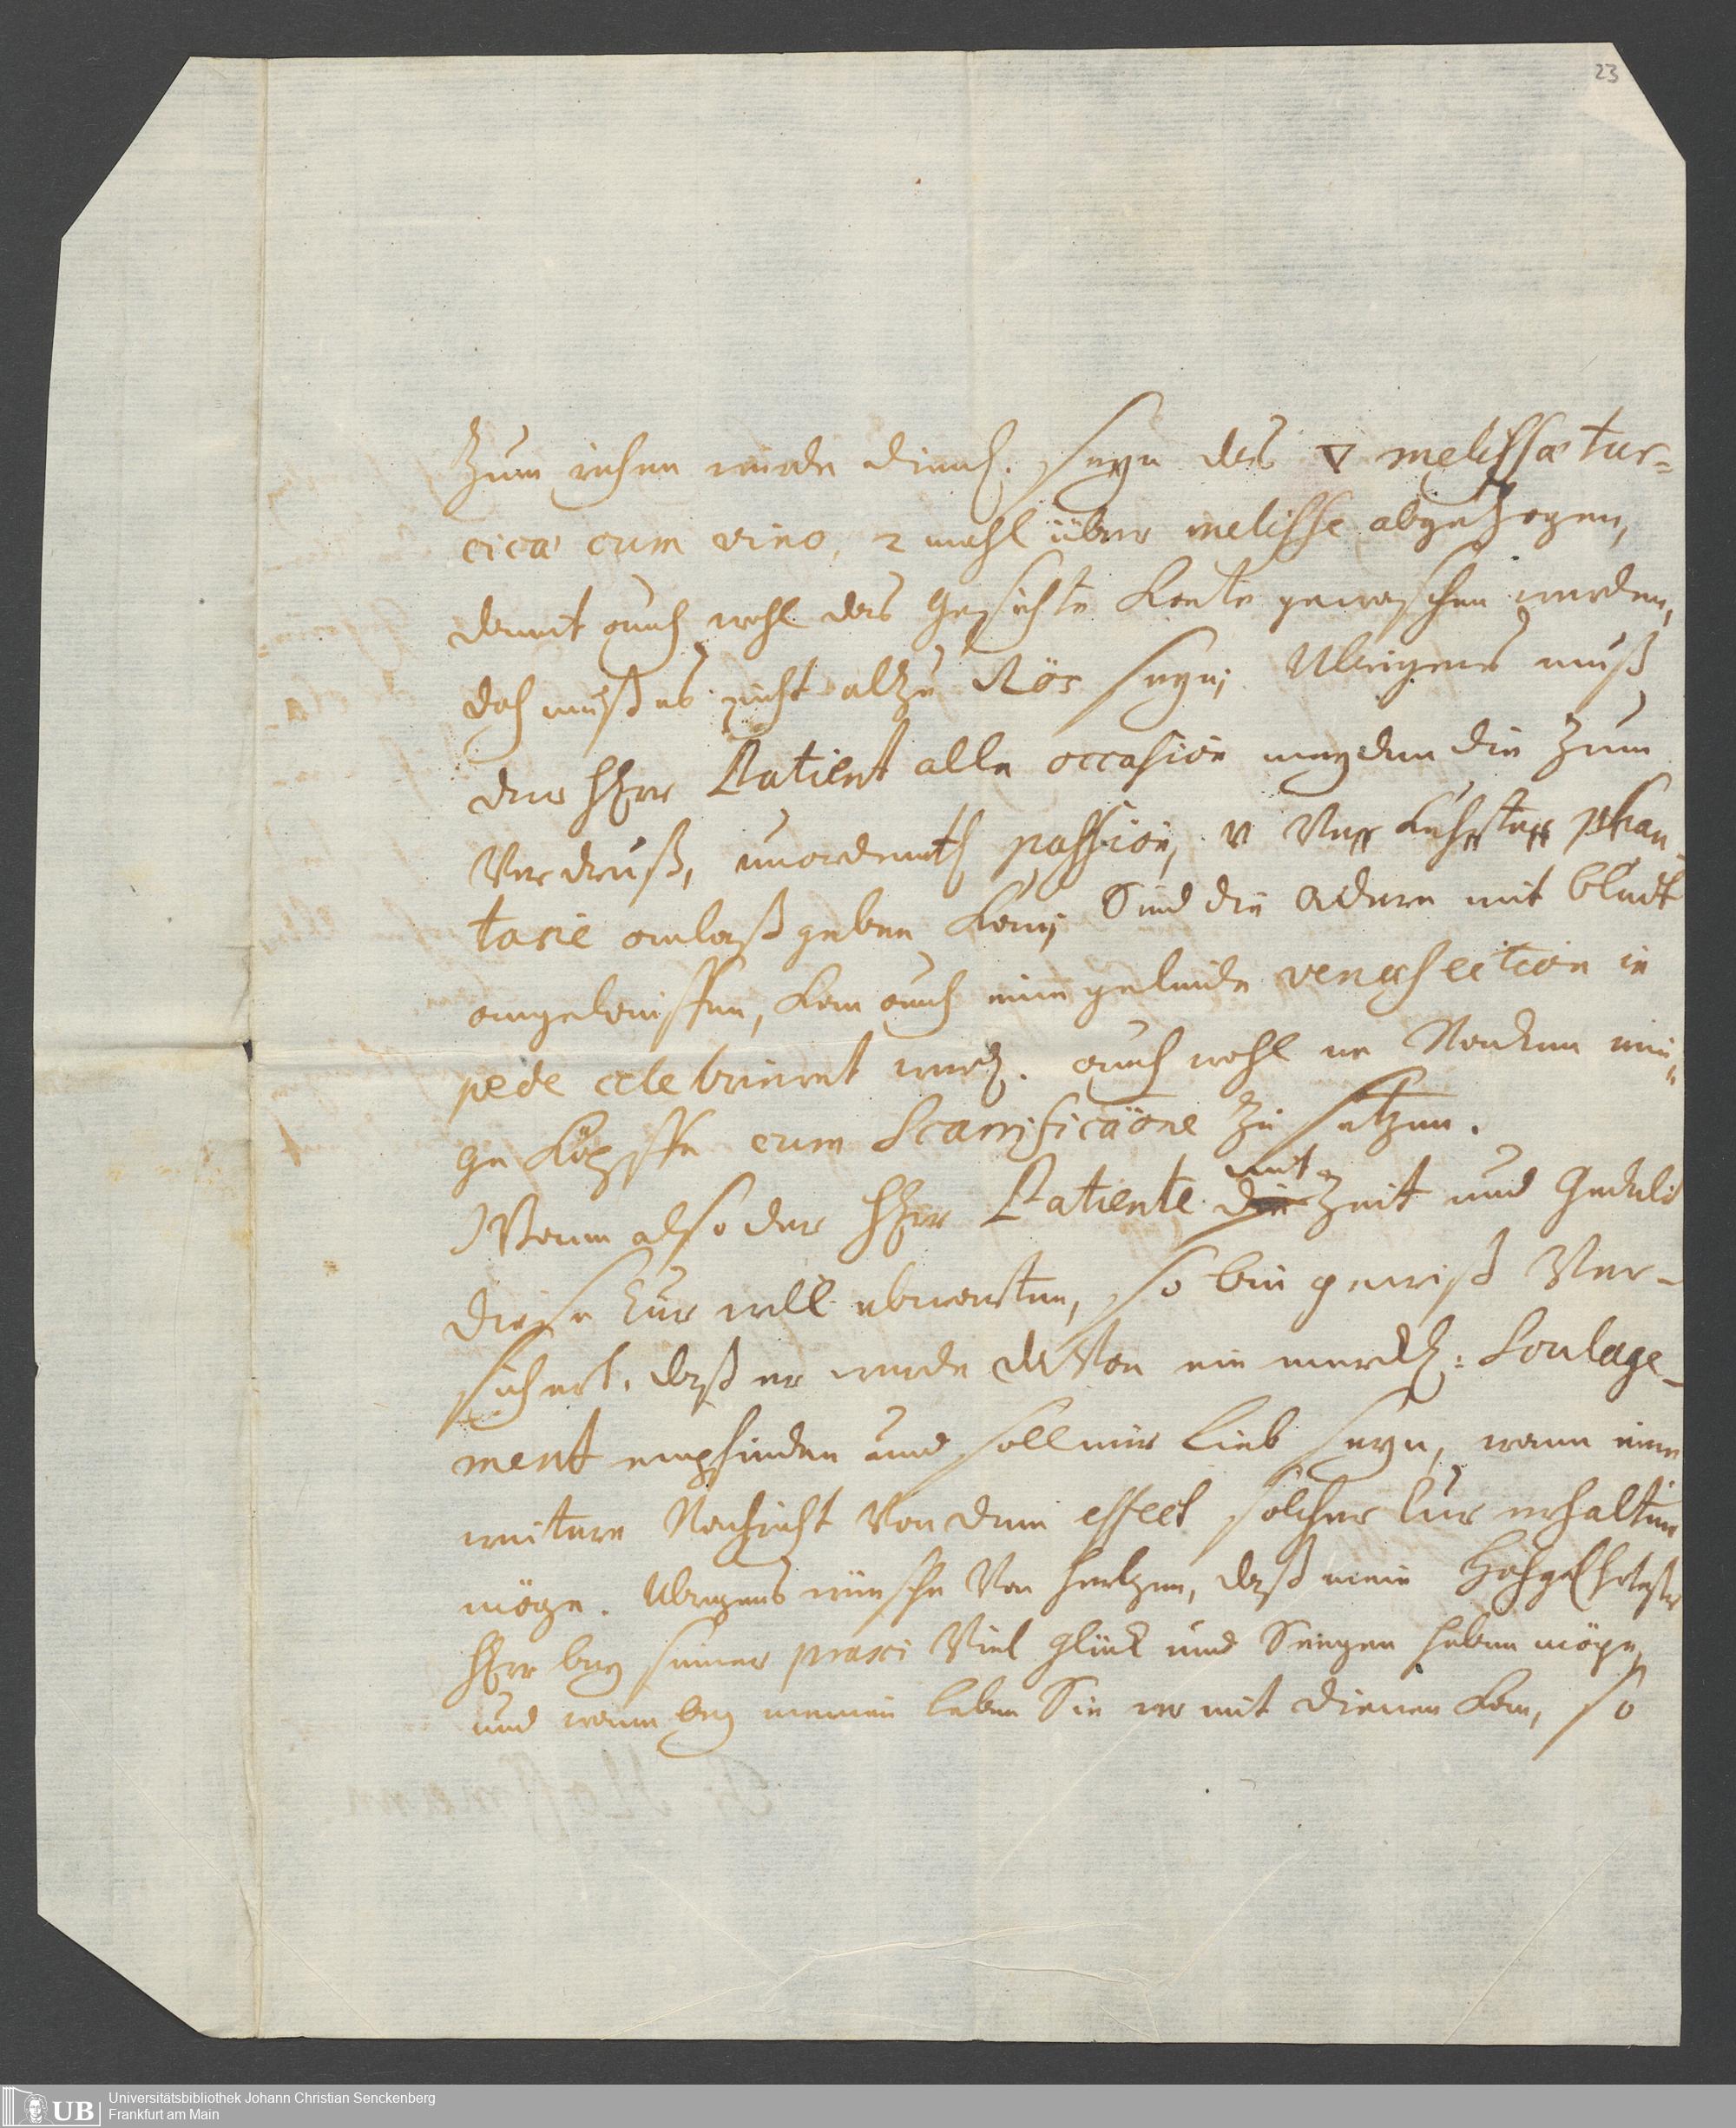 23
Zum riehen würde dienl. seyn das ▽ melissæ tur-
cicâ cum vino, 2 mahl über melisse abgezogen,
damit auch wohl das Gesichte Konte gewaschen werden,
doch muß es nicht allzu seyn; Ubrigens muß
der HErr Patient alle occasion meyden die Zum
Verdruß, unordentl passion, phan-
tasie anlaß geben Kan; Sind die Adern mit blut
angelauffen, Kan auch eine gelinde venæsection in
pede celebriret werd. auch wohl im Nacken eini-
ge Köpffe cum Scarrificaöne zu setzen.
Wann also der HErr Patiente mit Zeit und Gedult
diese Cur will abwarten, so bin gewiß Ver-
sichert, daß er werde davon ein merckl: Soulage-
ment empfinden und soll mir lieb seyn, wann eine
weitere Nachricht Von dem effect solcher Cur erhalten
möge. Ubrigens wünsche Von Hertzen, daß mein Hochgeehrtester
HErr bey seiner praxi Viel Glück und Seegen haben möge,
und wann bey meinem leben Sie wo mit dienen Kan, so
UB Universitätsbibliothek Johann Christian Senckenberg
Frankfurt am Main